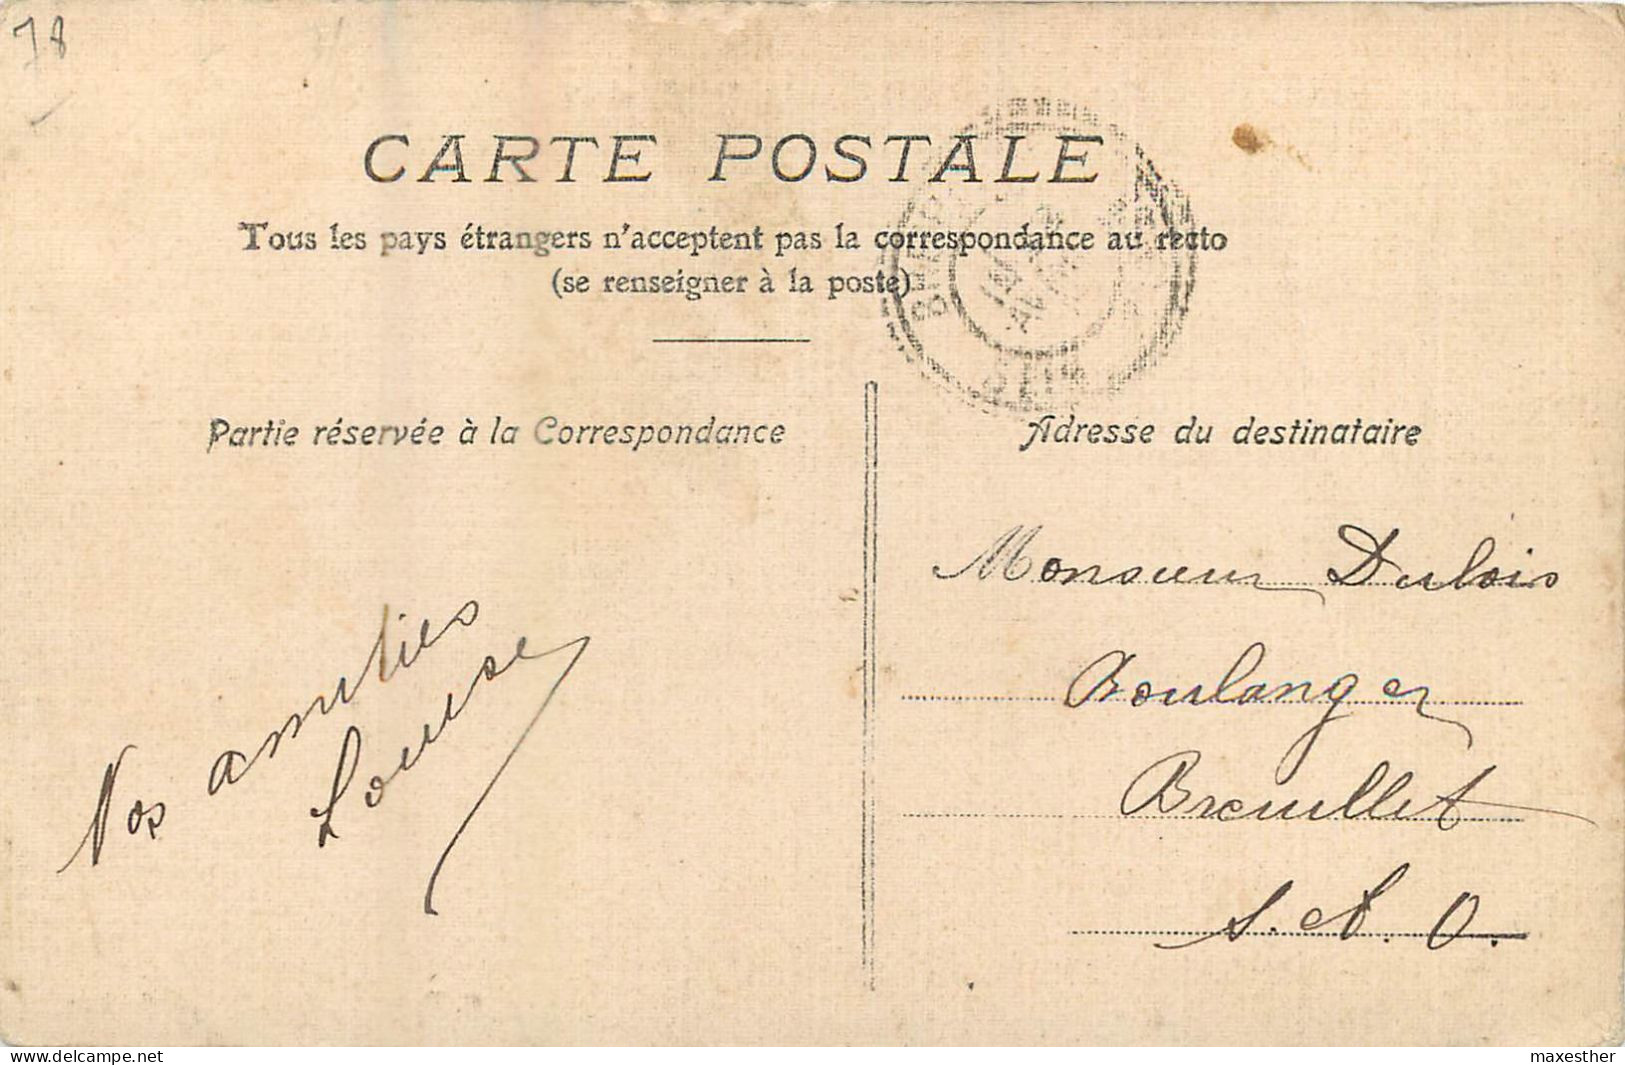 78
CARTE POSTALE
Tous les pays étrangers n'acceptent pas la correspondance au recto
(se renseigner à la poste)
Partie réservée à la Correspondance
Adresse du destinataire
Nos amitiés
Louise
Monsieur Dulois
Boulanger
Breuillet
S. et O.
delcampe.net
maxesther